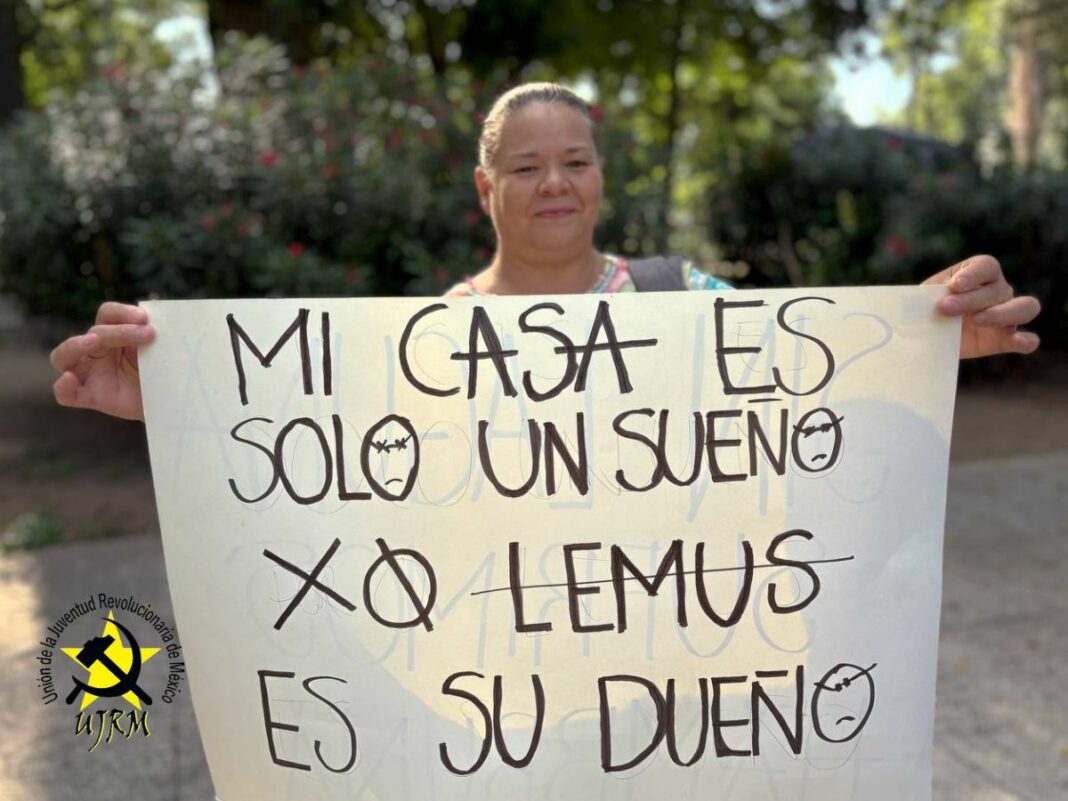 MI CASA ES
SOLO UN SUEÑO
XQ LEMUS
ES SU DUEÑO
Unión de la Juventud Revolucionaria de México
UJRM